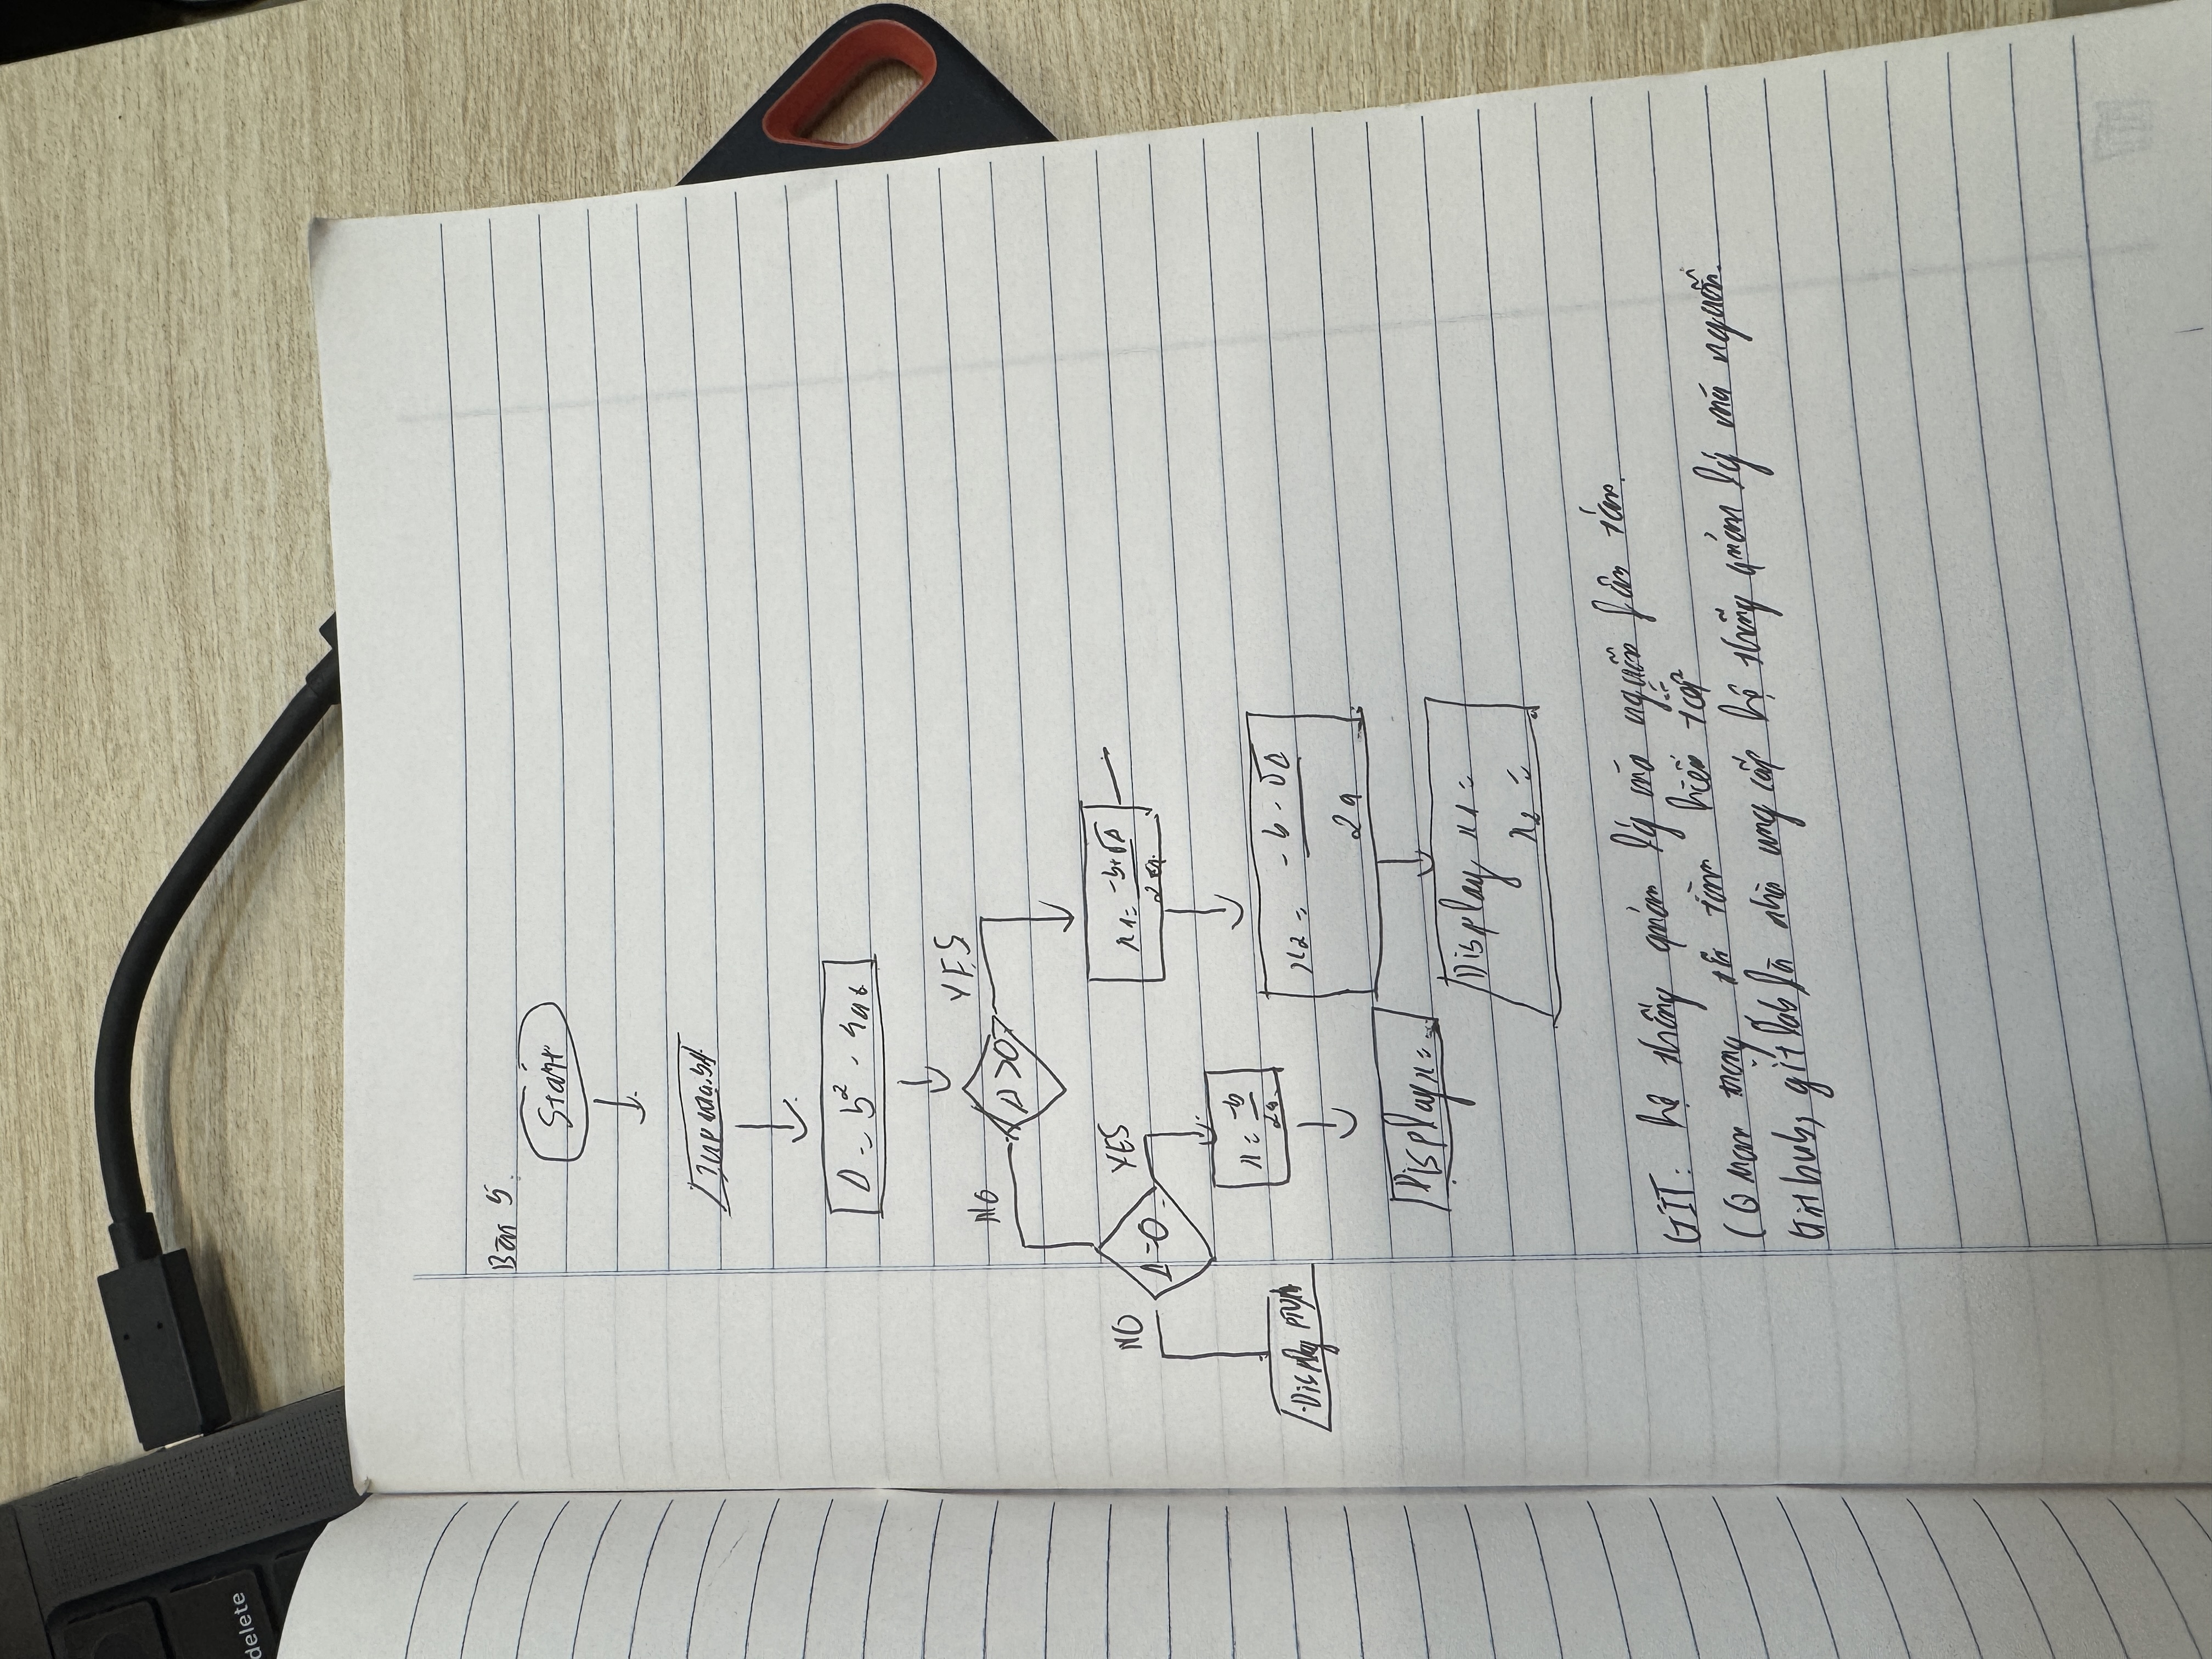 delete
Bài 5.
Start
Input a,b,c
Δ = b² - 4ac
Δ >0
NO
YES
Δ =0
NO
YES
x1= -b+√Δ / 2a
x = -b / 2a
x2 = -b - √Δ / 2a
Display PTVN
Display x =
Display x1 =
x2 =
GIT: hệ thống quản lý mã nguồn phân tán.
(Quan trọng
Github, gitlab là nhà cung cấp hệ thống quản lý mã nguồn.